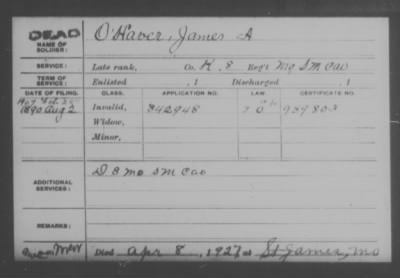 DEAD
NAME OF SOLDIER: O'Haver, James A
SERVICE: Late rank, Co. K, 8 Reg't Mo S M Cav
TERM OF SERVICE: Enlisted , 1 Discharged , 1
DATE OF FILING. CLASS. APPLICATION NO. LAW. CERTIFICATE NO.
1907 Feb 25
1890 Aug 2 Invalid, 342948 939803
Widow,
Minor,
ADDITIONAL SERVICES: D 8 Mo S M Cav
REMARKS:
Died Apr 8, 1927 at St James, Mo